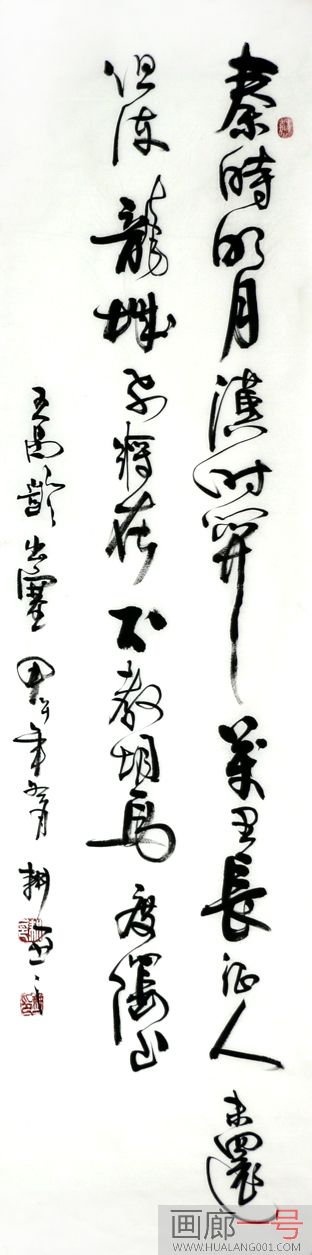 秦時明月漢時關萬里長征人未還
但使龍城飛將在不教胡馬度陰山
王昌齡出塞甲午年
画廊一号
WWW.HUALANG001.COM